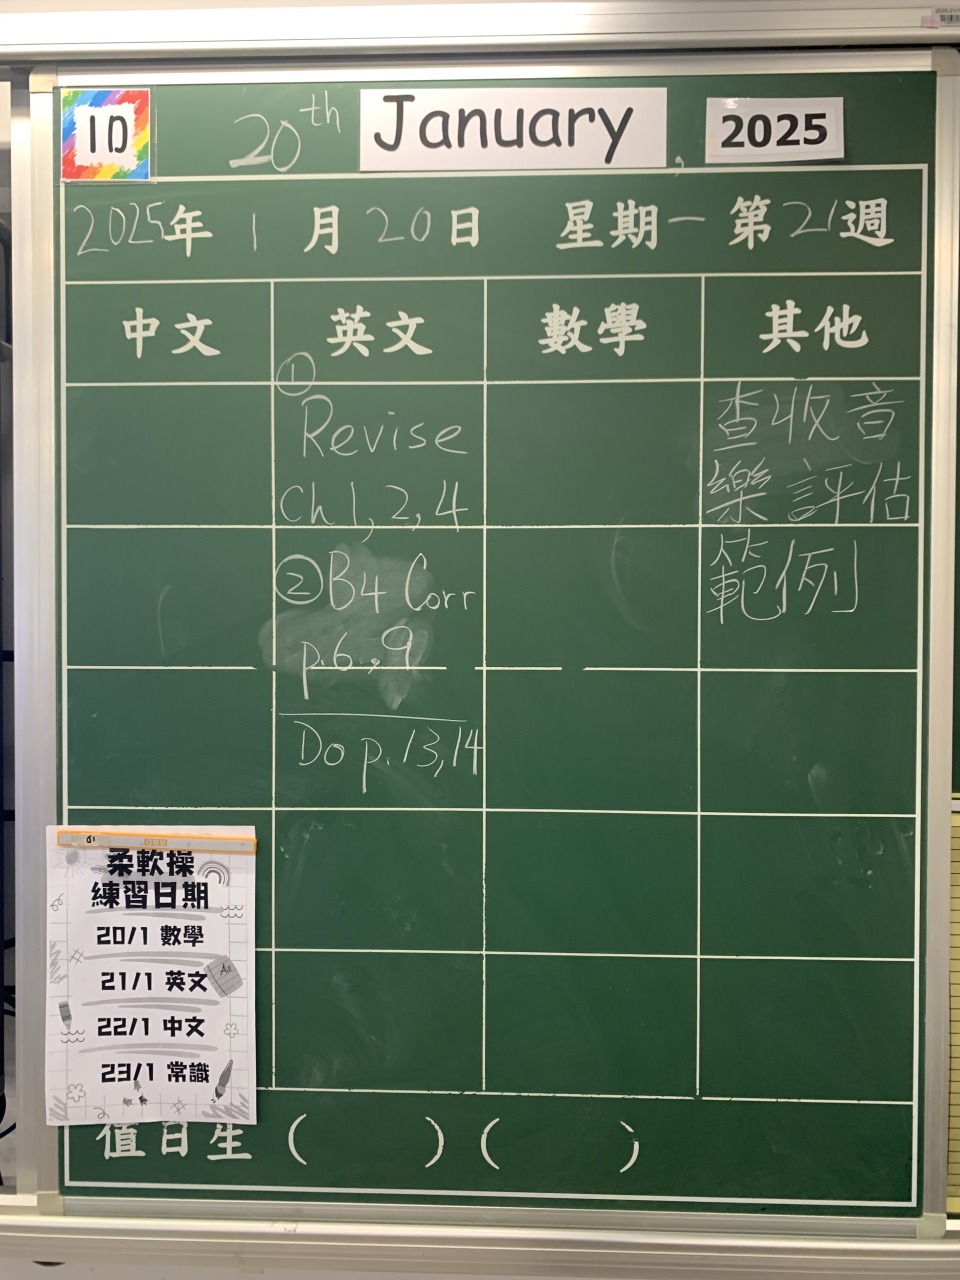 1D
20th January, 2025
2025年 1月20日 星期一 第21週
中文 英文 數學 其他
①
Revise
Ch 1, 2, 4
② B4 Corr
p.6, 9
Do p.13, 14
查收音
樂評估
範例
柔軟操
練習日期
20/1 數學
21/1 英文
22/1 中文
23/1 常識
值日生 ( ) ( )